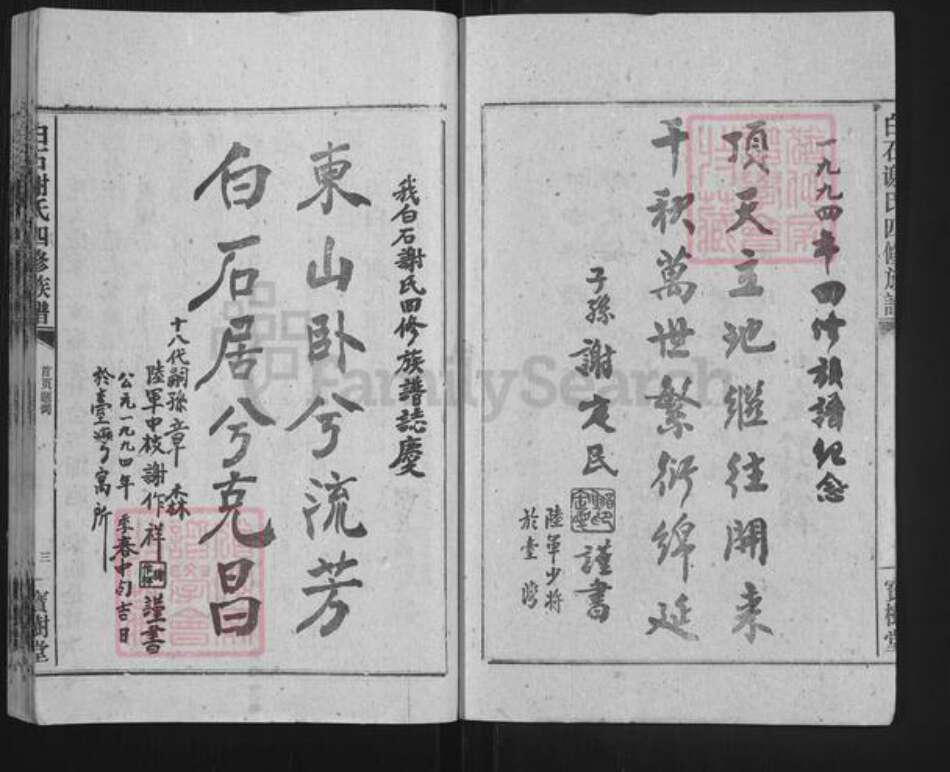 一九九四年四修族譜紀念
頂天立地繼往開来
千秋萬世繁衍綿延
子孫謝定民
謹書
陸軍少將
於臺灣
白石謝氏四修族譜
寶樹堂
我白石謝氏四修族譜誌慶
東山卧兮流芳
白石居兮克昌
十八代嗣孫章森
陸軍中校謝作祥
謹書
公元一九九四年季春中旬吉日
於臺灣寓所
白石謝氏四修族譜
首頁題詞
三
寶樹堂
FamilySearch